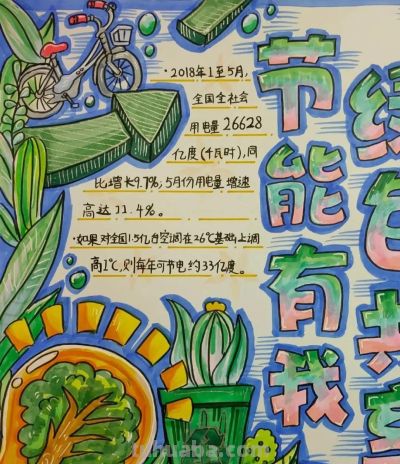 ·2018年1至5月,
全国全社会
用电量26628
亿度(千瓦时),同
比增长9.7%,5月份用电量增速
高达11.4%。
·如果对全国1.5亿台空调在26℃基础上调
高1℃,则每年可节电约33亿度。
节能有我
绿色共享
tuhuaba.com